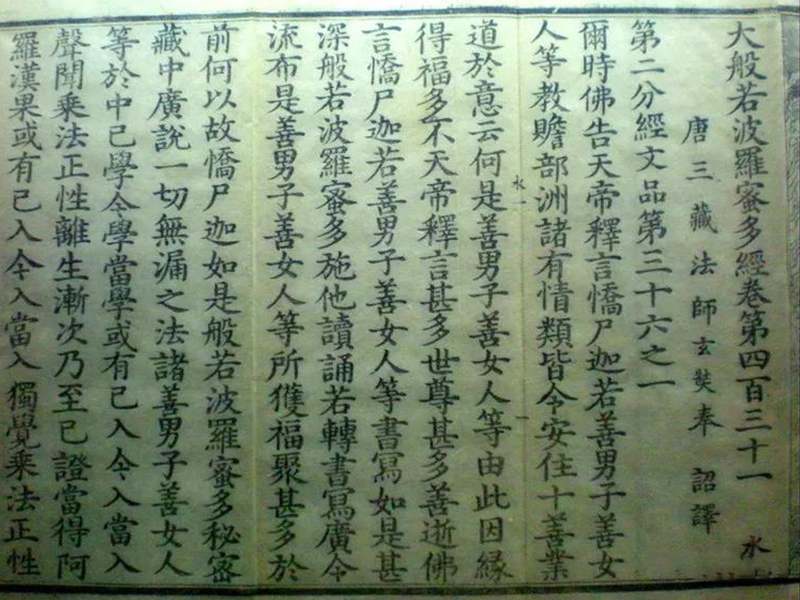 大般若波羅蜜多經卷第四百三十一 水
唐三藏法師玄奘奉 詔譯
第二分經文品第三十六之一
爾時佛告天帝釋言憍尸迦若善男子善女
人等教贍部洲諸有情類皆令安住十善業
水一
一
道於意云何是善男子善女人等由此因緣
得福多不天帝釋言甚多世尊甚多善逝佛
言憍尸迦若善男子善女人等書寫如是甚
深般若波羅蜜多施他讀誦若轉書寫廣令
流布是善男子善女人等所獲福聚甚多於
前何以故憍尸迦如是般若波羅蜜多秘密
藏中廣說一切無漏之法諸善男子善女人
等於中已學今學當學或有已入今入當入
聲聞乘法正性離生漸次乃至已證當得阿
羅漢果或有已入今入當入獨覺乘法正性